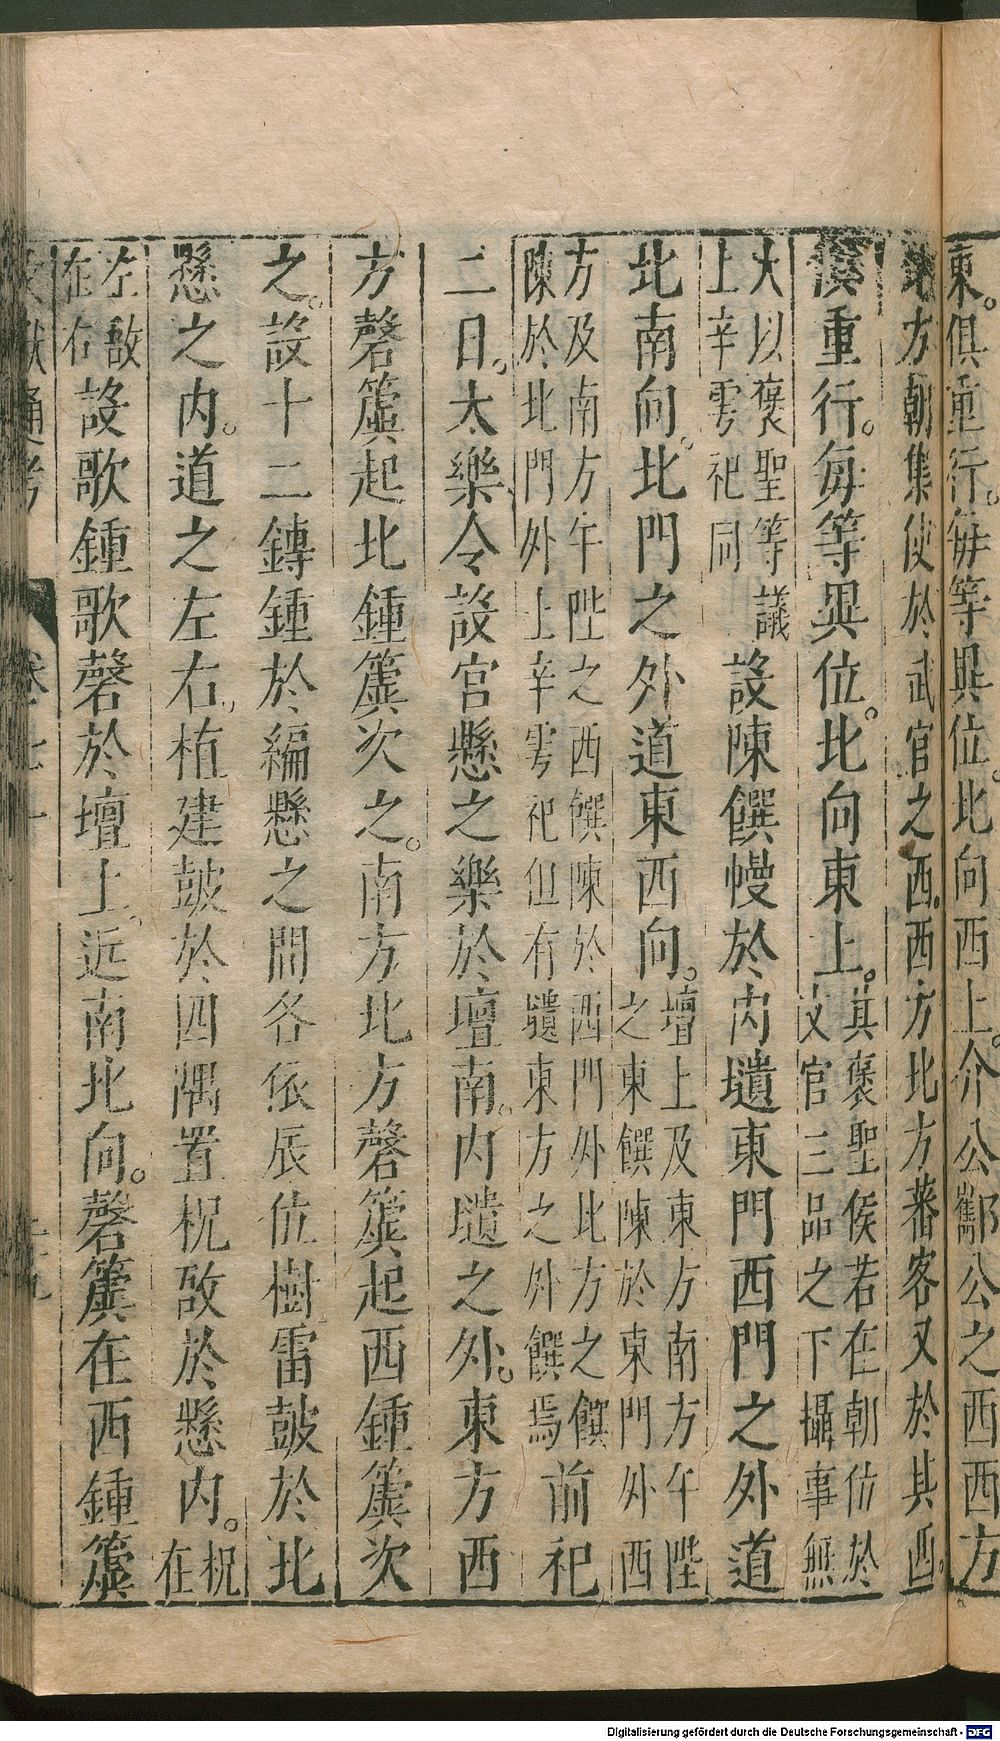 東。俱重行。每等異位。北向西上。介公酅公之西西方
北方朝集使於武官之西。西方北方蕃客又於其西。
俱重行。每等異位。北向東上。其褒聖侯若在朝位於
文官三品之下攝事無
大以褒聖等議
上辛雩祀同
設陳饌幔於內壝東門西門之外道
北南向。北門之外道東西向。壇上及東方南方午陛
之東饌陳於東門外西
方及南方午陛之西饌陳於西門外北方之饌
陳於北門外上辛雩祀但有壝東方之外饌焉
前祀
二日。太樂令設宮懸之樂於壇南。內壝之外。東方西
方磬簴起北鍾簴次之。南方北方磬簴起西鍾簴次
之。設十二鎛鍾於編懸之間各依辰位樹雷鼓於北
懸之內。道之左右。植建鼓於四隅置柷敔於懸內。柷
在
左敔
在右
設歌鍾歌磬於壇上。近南北向。磬簴在西鍾簴
文獻通考 卷七十 十九
Digitalisierung gefördert durch die Deutsche Forschungsgemeinschaft - DFG